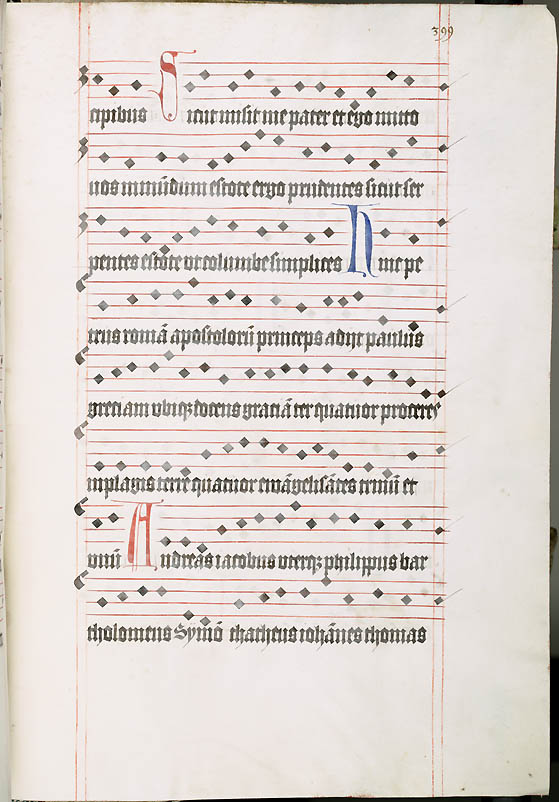 399
cipibus Sicut misit me pater et ego mitto
uos in mundum estote ergo prudentes sicut ser
pentes estote vt columbe simplices Hinc pe
trus romā apostolorū princeps adijt paulus
greciam vbiqz docens graciā ter quatuor proceres
in plagis terre quatuor ewāgelisātes trinū et
vnū Andreas iacobus vterqz philippus bar
tholomeus Symō thatheus iohānes thomas